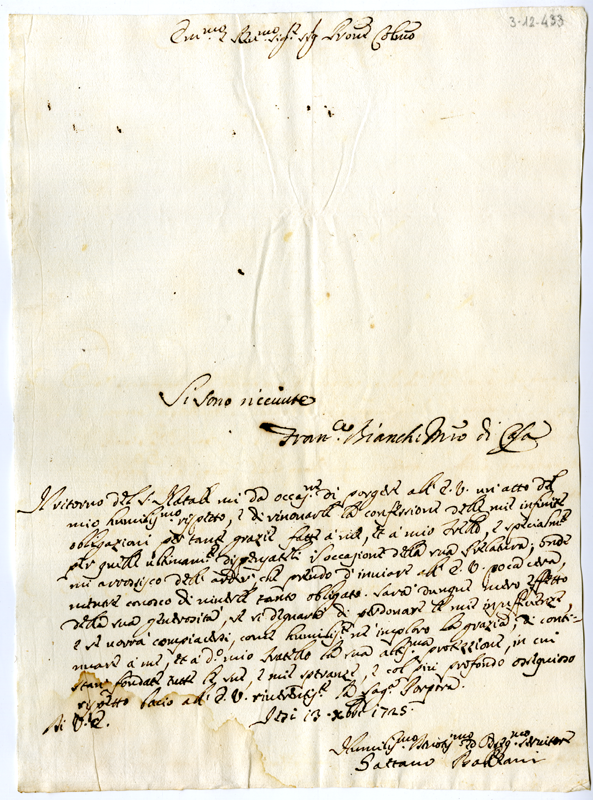 3-12-433
Em.mo e Rev.mo Sig.r Sig.r Pron.e Col.mo
Si sono riceuute
Fran.co Bianchi Mro di Casa
Il ritorno del S. Natale mi dà occa.ne di porgere all' E. V. un atto del
mio humiliss.mo rispetto, e di rinouarle la confessione delle mie infinite
obligazioni per tante grazie fatte a me, et a mio fratello, e specialm.te
per quelle ultimam.te dispensateli in occasione della sua
mi arrossisco dell' ardire che prendo d'inuiare all' E. V. poca cera,
mentre conosco di viuerle tanto obligato. Sarà dunque mero effetto
della sua generosità, se si degnarà di perdonare le mie insufficienze,
e se vorrà compiacersi, come humilm.te ne imploro la grazia, di conti-
nuare a me, et a d.o mio fratello la sua alt.ma protezzione, in cui
stanno fondate tutte le sue, e mie speranze, e col più profondo ossequioso
rispetto bacio all' E. V. riuerentem.te la Sag.a Porpora.
Di V. E. Jesi 13 Xbre 1725.
Humiliss.mo Deuotiss.mo et Oblig.mo seruitore
Gaetano